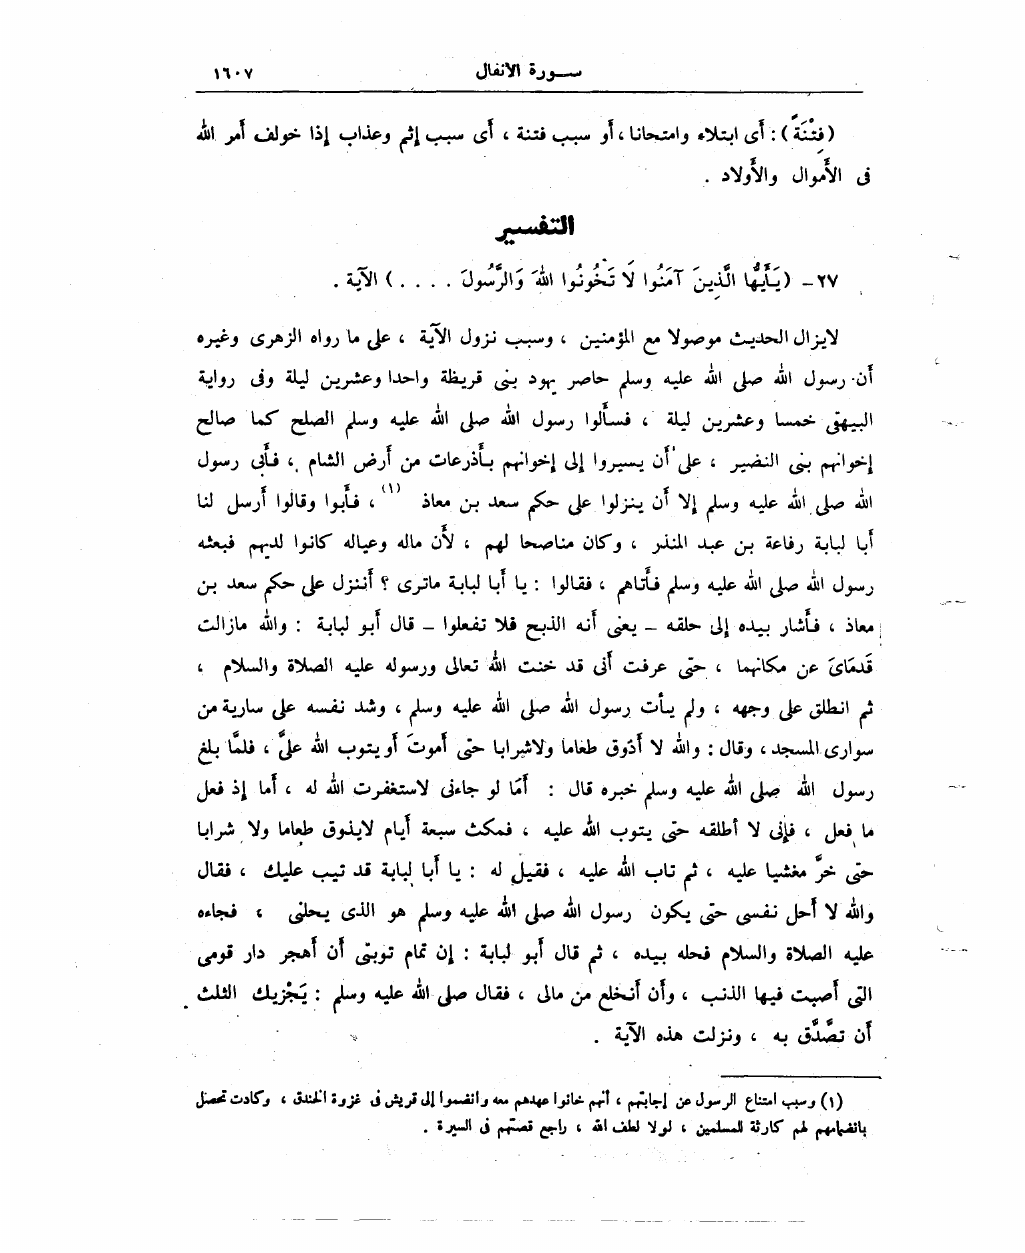 سورة الأنفال ١٦٠٧
(فِتْنَةٌ) : أى ابتلاء وامتحانا ، أو سبب فتنة ، أى سبب إثم وعذاب إذا خولف أمر الله
فى الأموال والأولاد .
التفسير
٢٧ – (يَـٰٓأَيُّهَا الَّذِينَ آمَنُوا لَا تَخُونُوا اللهَ وَالرَّسُولَ . . . .) الآية .
لايزال الحديث موصولا مع المؤمنين ، وسبب نزول الآية ، على ما رواه الزهرى وغيره
أن رسول الله صلى الله عليه وسلم حاصر يهود بنى قريظة واحدا وعشرين ليلة وفى رواية
البيهقى خمسا وعشرين ليلة ، فسألوا رسول الله صلى الله عليه وسلم الصلح كما صالح
إخوانهم بنى النضير ، على أن يسيروا إلى إخوانهم بأذرعات من أرض الشام ، فأبى رسول
الله صلى الله عليه وسلم إلا أن ينزلوا على حكم سعد بن معاذ (١) ، فأبوا وقالوا أرسل لنا
أبا لبابة رفاعة بن عبد المنذر ، وكان مناصحا لهم ، لأن ماله وعياله كانوا لديهم فبعثه
رسول الله صلى الله عليه وسلم فأتاهم ، فقالوا : يا أبا لبابة ماترى ؟ أننزل على حكم سعد بن
معاذ ، فأشار بيده إلى حلقه – يعنى أنه الذبح فلا تفعلوا – قال أبو لبابة : والله مازالت
قَدمَاىَ عن مكانهما ، حتى عرفت أنى قد خنت الله تعالى ورسوله عليه الصلاة والسلام ،
ثم انطلق على وجهه ، ولم يأت رسول الله صلى الله عليه وسلم ، وشد نفسه على سارية من
سوارى المسجد ، وقال : والله لا أذوق طعاما ولاشرابا حتى أموتَ أو يتوب الله علىَّ ، فلمَّا بلغ
رسول الله صلى الله عليه وسلم خبره قال : أمَا لو جاءنى لاستغفرت الله له ، أما إذ فعل
ما فعل ، فإنى لا أطلقه حتى يتوب الله عليه ، فمكث سبعة أيام لايذوق طعاما ولا شرابا
حتى خرَّ مغشيا عليه ، ثم تاب الله عليه ، فقيل له : يا أبا لبابة قد تيب عليك ، فقال
والله لا أحل نفسى حتى يكون رسول الله صلى الله عليه وسلم هو الذى يحلنى ، فجاءه
عليه الصلاة والسلام فحله بيده ، ثم قال أبو لبابة : إن تمام توبتى أن أهجر دار قومى
التى أصبت فيها الذنب ، وأن أنخلع من مالى ، فقال صلى الله عليه وسلم : يَجْزيك الثلث
أن تصَّدَّق به ، ونزلت هذه الآية .
(١) وسبب امتناع الرسول عن إجابتهم ، أنهم خانوا عهدهم معه وانضموا إلى قريش فى غزوة الخندق ، وكادت تحصل
بانضمامهم لهم كارثة للمسلمين ، لولا لطف الله ، راجع قصتهم فى السيرة .